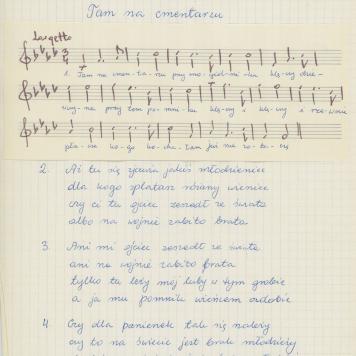 Tam na cmentarzu
Larghetto
1. Tam na cmen-ta-rzu przy mo-gil-ni-ku klę-czy dzie-
wczy-na przy tym pom-ni-ku klę-czy i klę-czy i rzewnie
pła-cze ko-go ko-cha-łam już nie zo-ba-czę
2. Aż tu się zjawia jakiś młodzieniec
dla kogo splatasz różany wieniec
czy ci tu ojciec zeszedł ze świata
albo na wojnie zabito brata
3. Ani mi ojciec zeszedł ze świata
ani na wojnie zabito brata
tylko tu leży mój luby w tym grobie
a ja mu pomnik wieńcem ozdobię
4. Czy dla panienek tak się należy
czy to na świecie jest brak młodzieży